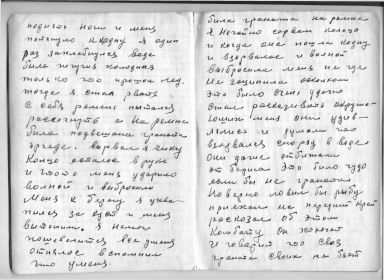 поднял ноги и меня
потянуло ко дну я один
раз захлебнулся вода
была жгучая холодная
только что прошол лед
тогда я стал рвать
с себя ремень пытался
растегнуть а на ремне
была подвешена граната
вырвал я чику
кольцо осталось в руке
и чтото меня ударило
волной и выбросило
меня к берегу я ухва-
тился за куст и меня
вытощили, я немог
пошевелится все у меня
отнялос вспомнил
что у меня
была граната на ремне
я нечайно сорвал кольцо
и когда она пошла ко дну
и взорвалас и волной
выбросила меня не где
не зацепила осколком
это было очень удачно
стал рассказывать окружа-
ющим меня они удив-
лялись и думали что
взорвался снаряд в воде
они даже отбежали
от берега это было чудо
если бы не граната
ловил бы рыбу
приехал на передний край
росказал об этом
комбату он хохочет
и говорит что своя
граната своих не бьет